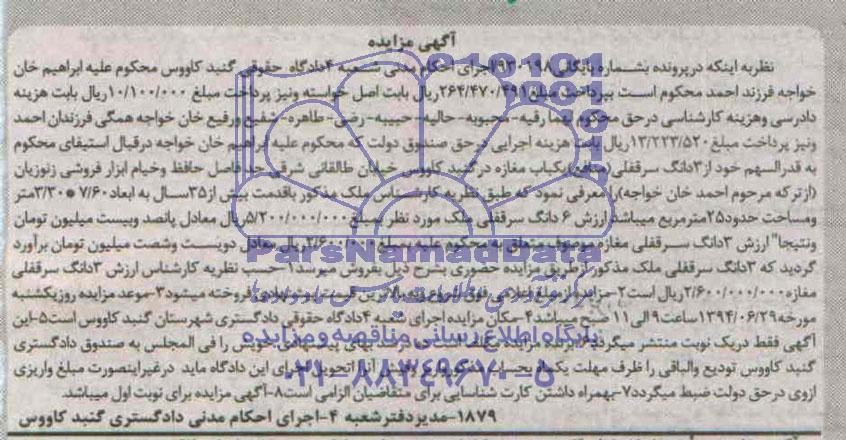 آگهی مزایده
نظر به اینکه در پرونده بشماره بایگانی ۱۹۸-۹۳ اجرای احکام مدنی شعبه ۴ دادگاه حقوقی گنبد کاووس محکوم علیه ابراهیم خان
خواجه فرزند احمد محکوم است بپرداخت مبلغ ۲۶۴/۴۷۰/۴۹۱ ریال بابت اصل خواسته ونیز پرداخت مبلغ ۱۰/۱۰۰/۰۰۰ ریال بابت هزینه
دادرسی وهزینه کارشناسی در حق محکوم لهما رقیه- محبوبه- حالیه- حبیبه- رضی- طاهره- شفیع ورفیع خان خواجه همگی فرزندان احمد
ونیز پرداخت مبلغ ۱۳/۲۲۳/۵۲۰ ریال بابت هزینه اجرایی در حق صندوق دولت که محکوم علیه ابراهیم خان خواجه در قبال استیفای محکوم
به قدرالسهم خود از ۳ دانگ سرقفلی (منافع) یکباب مغازه در گنبد کاووس خیابان طالقانی شرقی حد فاصل حافظ وخیام ابزار فروشی زنوزیان
(از ترکه مرحوم احمد خان خواجه) را معرفی نمود که طبق نظریه کارشناس ملک مذکور باقدمت بیش از ۳۵ سال به ابعاد ۷/۶۰*۳/۳۰ متر
ومساحت حدود ۲۵ متر مربع میباشد ارزش ۶ دانگ سرقفلی ملک مورد نظر بمبلغ ۵/۲۰۰/۰۰۰/۰۰۰ ریال معادل پانصد وبیست میلیون تومان
ونتیجا" ارزش ۳ دانگ سرقفلی مغازه موصوف متعلق به محکوم علیه بمبلغ ۲/۶۰۰/۰۰۰/۰۰۰ ریال معادل دویست وشصت میلیون تومان برآورد
گردید که ۳ دانگ سرقفلی ملک مذکور از طریق مزایده حضوری بشرح ذیل بفروش میرسد ۱-حسب نظریه کارشناس ارزش ۳ دانگ سرقفلی
مغازه ۲/۶۰۰/۰۰۰/۰۰۰ ریال است ۲-مزایده از مبلغ اعلامی فوق شروع فروخته میشود ۳-موعد مزایده روز یکشنبه
مورخه ۱۳۹۴/۰۶/۲۹ ساعت ۹ الی ۱۱ صبح میباشد ۴-مکان مزایده اجرای شعبه ۴ دادگاه حقوقی دادگستری شهرستان گنبد کاووس است ۵-این
آگهی فقط در یک نوبت منتشر میگردد ۶-برنده مزایده بهای خویش را فی المجلس به صندوق دادگستری
گنبد کاووس تودیع والباقی را ظرف مهلت یکماه بحساب مذکور واریز وفیش آنرا تحویل اجرای این دادگاه نماید در غیر اینصورت مبلغ واریزی
از وی در حق دولت ضبط میگردد ۷-بهمراه داشتن کارت شناسایی برای متقاضیان الزامی است ۸-آگهی مزایده برای نوبت اول میباشد.
۱۸۷۹-مدیر دفتر شعبه ۴-اجرای احکام مدنی دادگستری گنبد کاووس
ParsNamadData
پایگاه اطلاع رسانی مناقصه و مزایده
۰۲۱-۸۸۳۴۹۶۷۰-۵